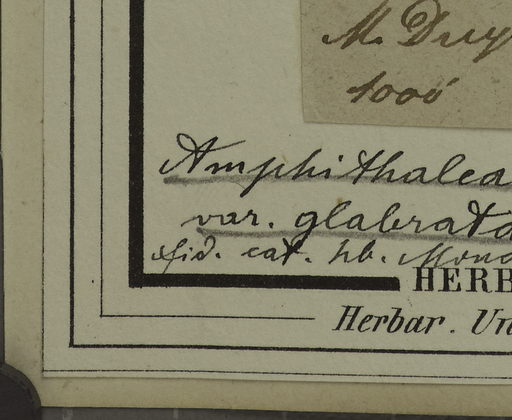 M. Duy
1000'
Amphithalea
var. glabrata
fid. cat. hb. Mona
HERB
Herbar. Un